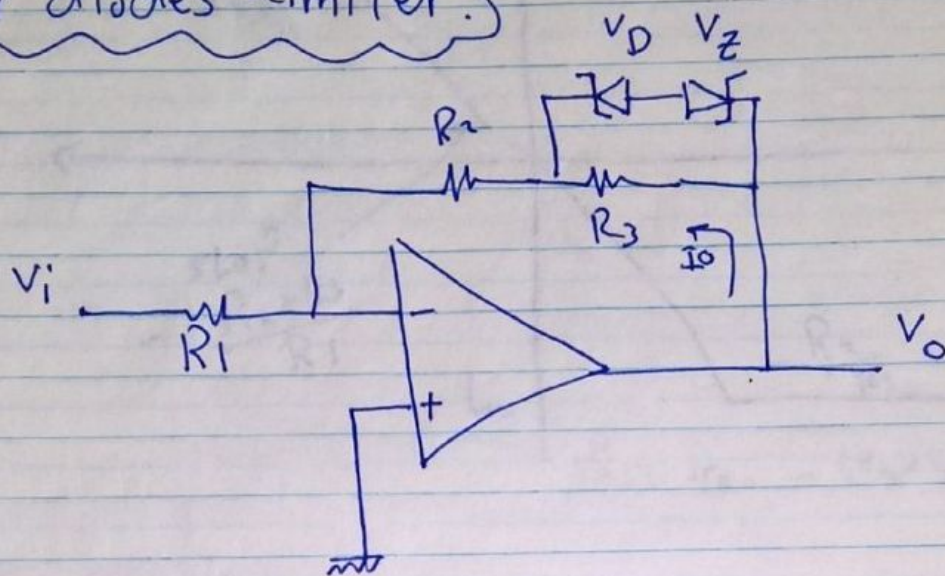 diodes limiter.
VD VZ
R2
R3
IO
Vi
R1
-
+
Vo